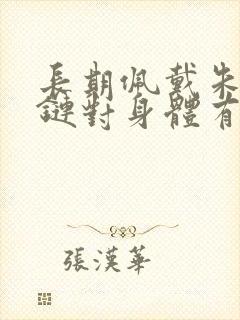 長期佩戴朱
鏈對身體有
張漢華